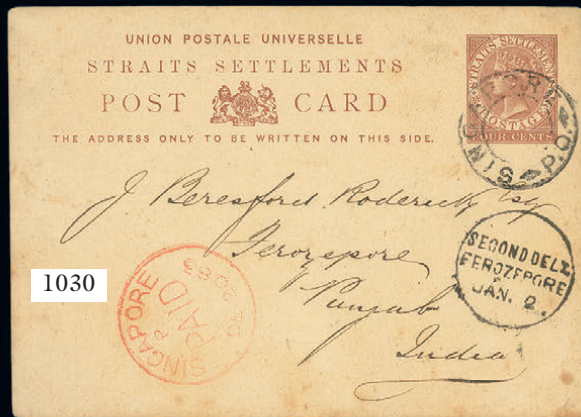 UNION POSTALE UNIVERSELLE
STRAITS SETTLEMENTS
POST CARD
THE ADDRESS ONLY TO BE WRITTEN ON THIS SIDE.
STRAITS SETTLEMENTS
POSTAGE
FOUR CENTS
SINGAPORE P.O.
J Beresford Roderick Esq
Ferozepore
Punjab
India
SECOND DELY
FEROZEPORE
JAN. 2.
1030
SINGAPORE
PAID